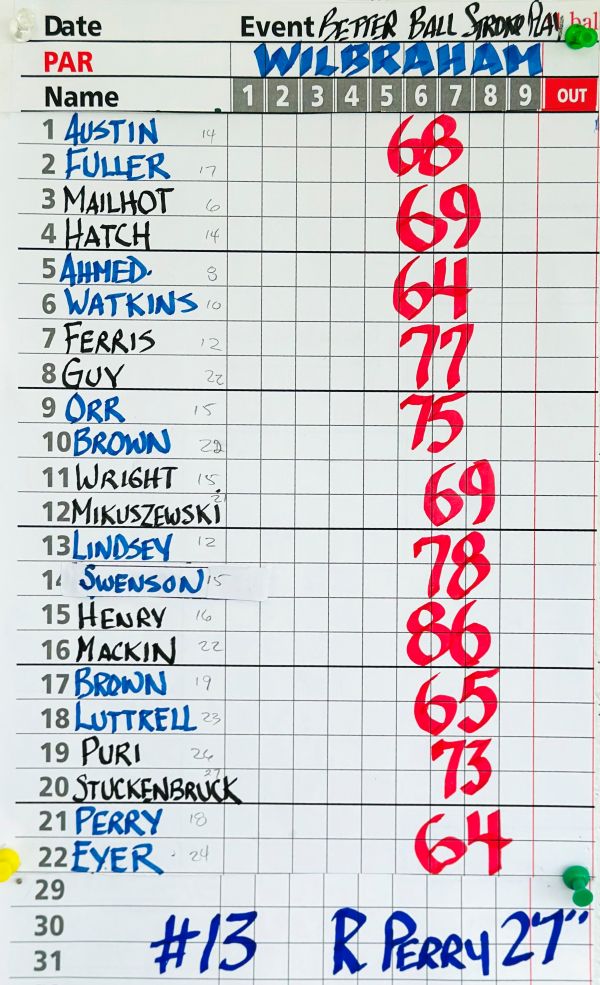 Date Event BETTER BALL STROKE PLAY bal
PAR WILBRAHAM
Name 1 2 3 4 5 6 7 8 9 OUT
1 AUSTIN 14 68
2 FULLER 17
3 MAILHOT 6 69
4 HATCH 14
5 AHMED. 8 64
6 WATKINS 10
7 FERRIS 12 77
8 GUY 22
9 ORR 15 75
10 BROWN 22
11 WRIGHT 15 69
12 MIKUSZEWSKI 21
13 LINDSEY 12 78
14 SWENSON 15
15 HENRY 16 86
16 MACKIN 22
17 BROWN 19 65
18 LUTTRELL 23
19 PURI 26 73
20 STUCKENBRUCK 27
21 PERRY 18 64
22 EYER 24
29
30 #13 R PERRY 27"
31